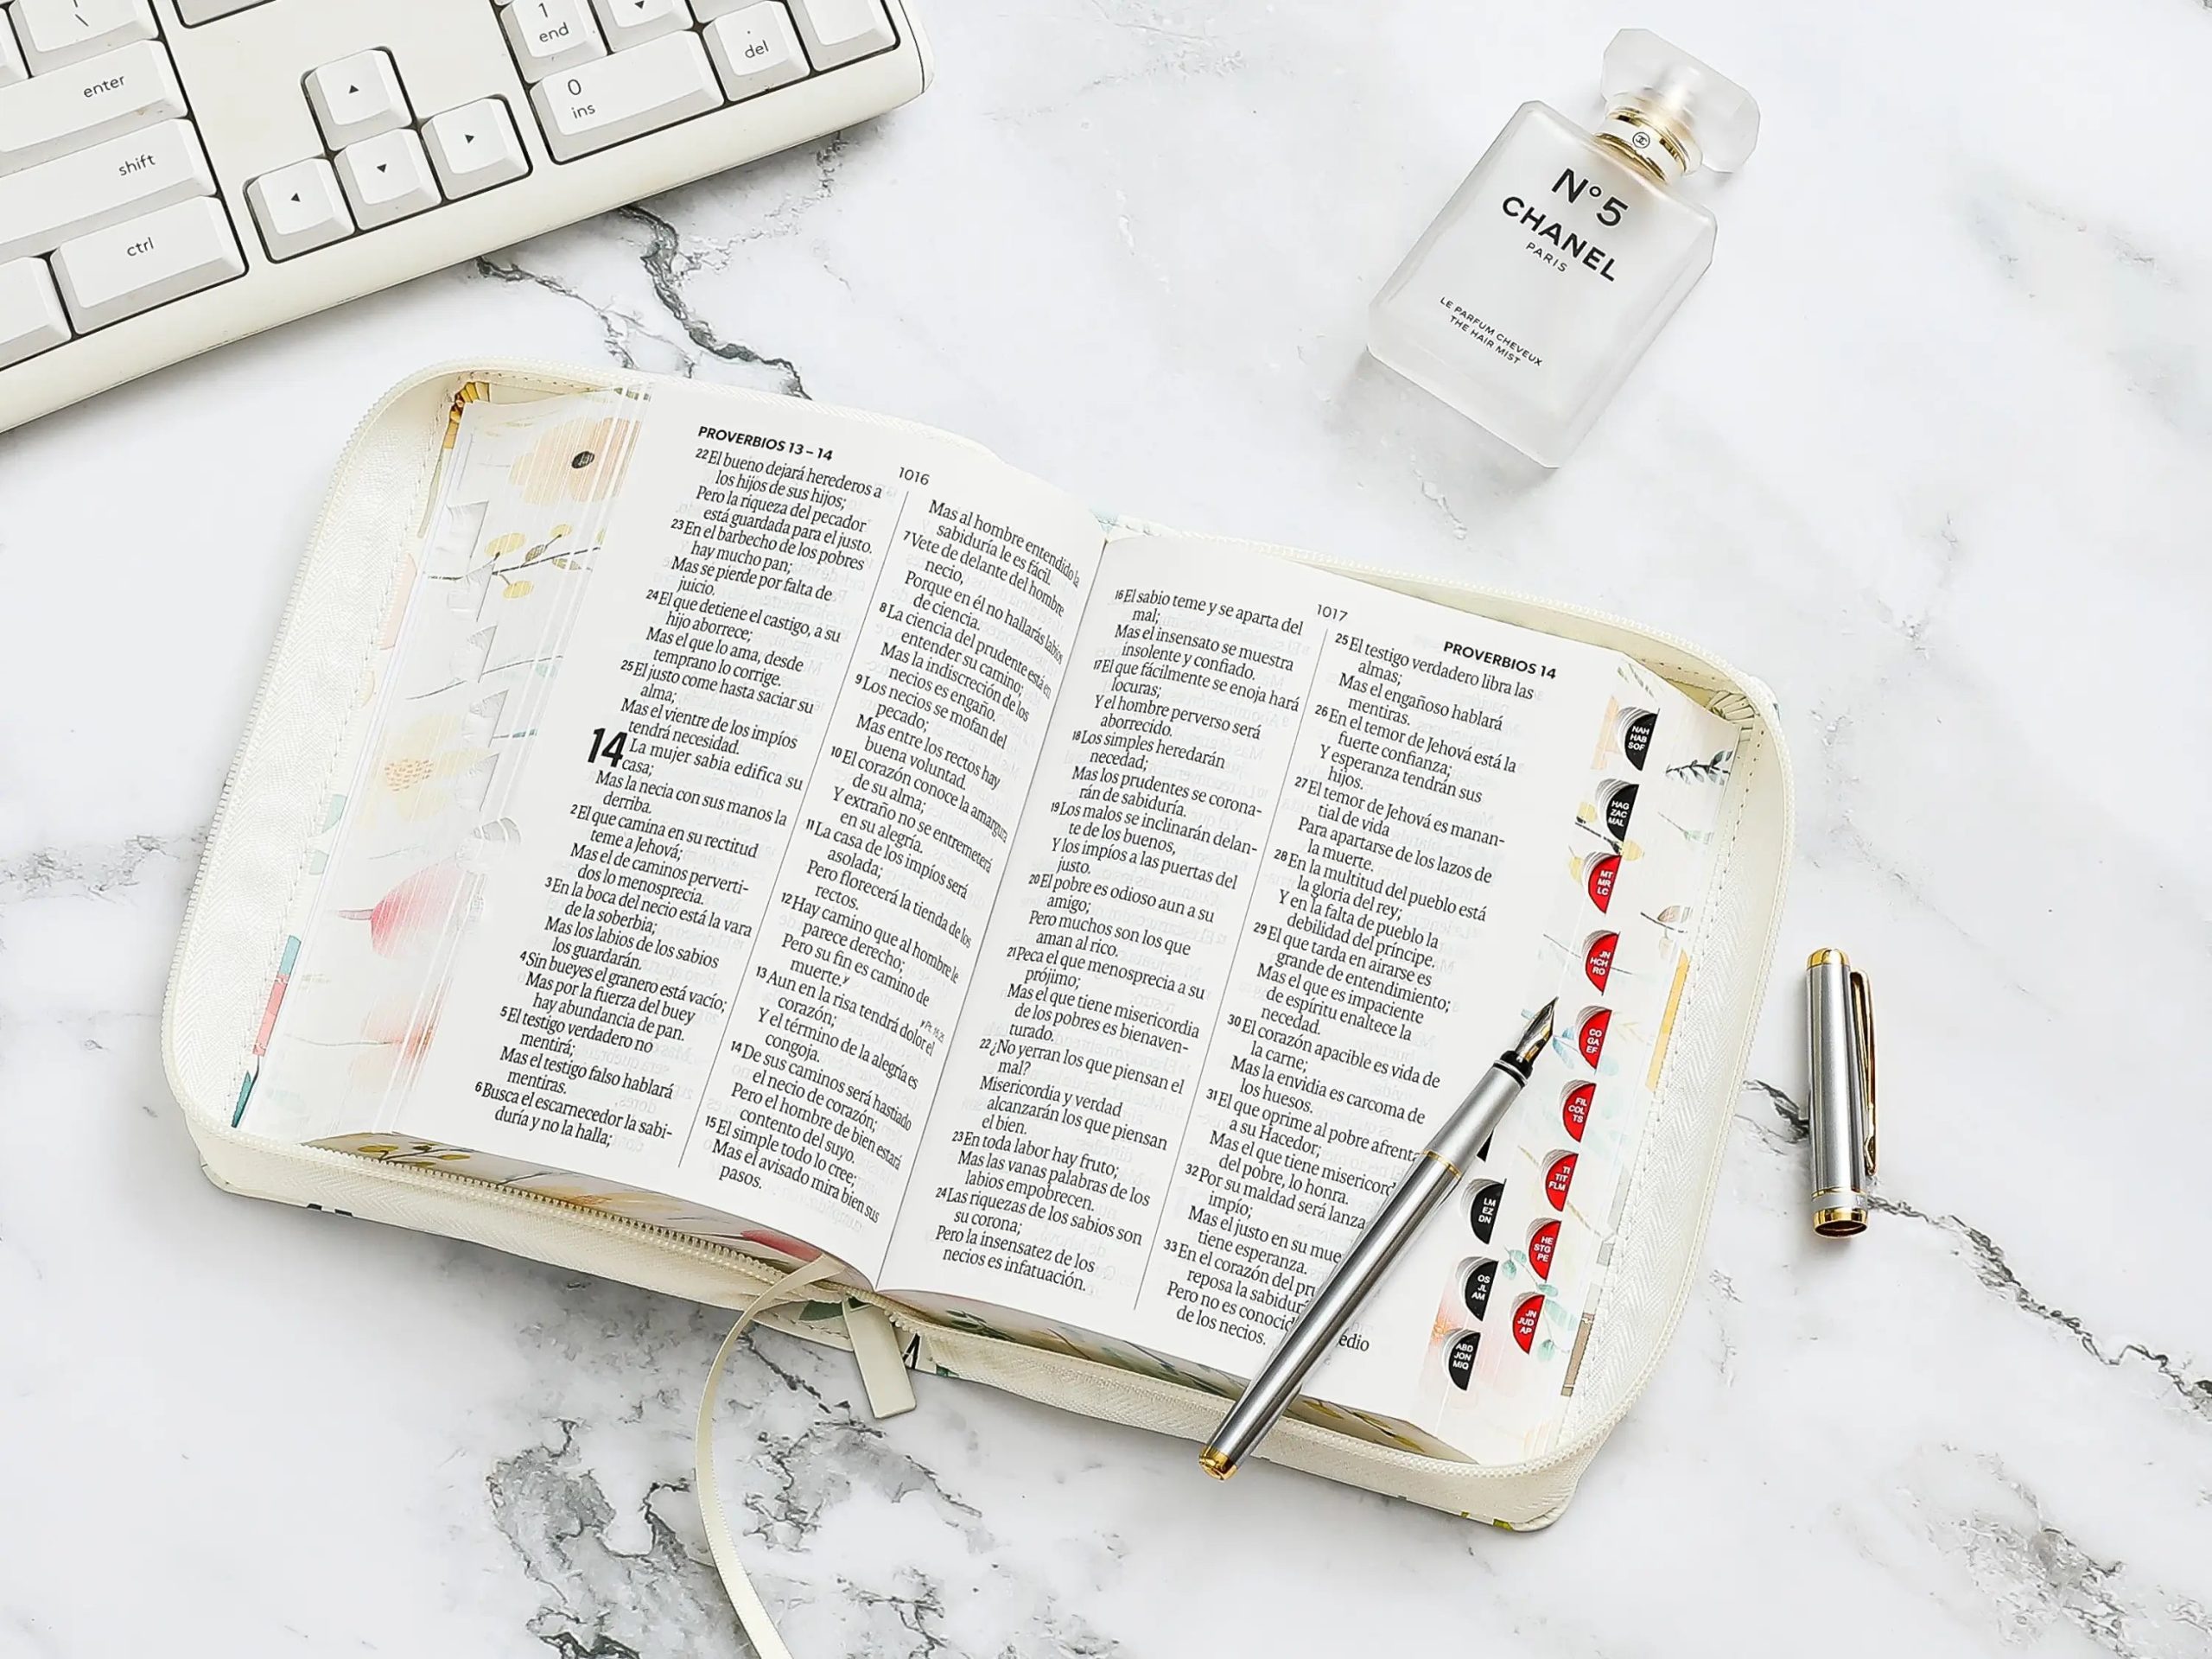 \
enter
shift
ctrl
1
end
0
ins
.
del
N°5
CHANEL
PARIS
LE PARFUM CHEVEUX
THE HAIR MIST
PROVERBIOS 13 – 14
1016
22 El bueno dejará herederos a
los hijos de sus hijos;
Pero la riqueza del pecador
está guardada para el justo.
23 En el barbecho de los pobres
hay mucho pan;
Mas se pierde por falta de
juicio.
24 El que detiene el castigo, a su
hijo aborrece;
Mas el que lo ama, desde
temprano lo corrige.
25 El justo come hasta saciar su
alma;
Mas el vientre de los impíos
tendrá necesidad.
14 La mujer sabia edifica su
casa;
Mas la necia con sus manos la
derriba.
2 El que camina en su rectitud
teme a Jehová;
Mas el de caminos perverti-
dos lo menosprecia.
3 En la boca del necio está la vara
de la soberbia;
Mas los labios de los sabios
los guardarán.
4 Sin bueyes el granero está vacío;
Mas por la fuerza del buey
hay abundancia de pan.
5 El testigo verdadero no
mentirá;
Mas el testigo falso hablará
mentiras.
6 Busca el escarnecedor la sabi-
duría y no la halla;
Mas al hombre entendido la
sabiduría le es fácil.
7 Vete de delante del hombre
necio,
Porque en él no hallarás labios
de ciencia.
8 La ciencia del prudente está en
entender su camino;
Mas la indiscreción de los
necios es engaño.
9 Los necios se mofan del
pecado;
Mas entre los rectos hay
buena voluntad.
10 El corazón conoce la amargura
de su alma;
Y extraño no se entremeterá
en su alegría.
11 La casa de los impíos será
asolada;
Pero florecerá la tienda de los
rectos.
12 Hay camino que al hombre le
parece derecho;
Pero su fin es camino de
muerte.y
13 Aun en la risa tendrá dolor el
corazón;
Y el término de la alegría es
congoja.
14 De sus caminos será hastiado
el necio de corazón;
Pero el hombre de bien estará
contento del suyo.
15 El simple todo lo cree;
Mas el avisado mira bien sus
pasos.
1017
PROVERBIOS 14
16 El sabio teme y se aparta del
mal;
Mas el insensato se muestra
insolente y confiado.
17 El que fácilmente se enoja hará
locuras;
Y el hombre perverso será
aborrecido.
18 Los simples heredarán
necedad;
Mas los prudentes se corona-
rán de sabiduría.
19 Los malos se inclinarán delan-
te de los buenos,
Y los impíos a las puertas del
justo.
20 El pobre es odioso aun a su
amigo;
Pero muchos son los que
aman al rico.
21 Peca el que menosprecia a su
prójimo;
Mas el que tiene misericordia
de los pobres es bienaven-
turado.
22 ¿No yerran los que piensan el
mal?
Misericordia y verdad
alcanzarán los que piensan
el bien.
23 En toda labor hay fruto;
Mas las vanas palabras de los
labios empobrecen.
24 Las riquezas de los sabios son
su corona;
Pero la insensatez de los
necios es infatuación.
25 El testigo verdadero libra las
almas;
Mas el engañoso hablará
mentiras.
26 En el temor de Jehová está la
fuerte confianza;
Y esperanza tendrán sus
hijos.
27 El temor de Jehová es manan-
tial de vida
Para apartarse de los lazos de
la muerte.
28 En la multitud del pueblo está
la gloria del rey;
Y en la falta de pueblo la
debilidad del príncipe.
29 El que tarda en airarse es
grande de entendimiento;
Mas el que es impaciente
de espíritu enaltece la
necedad.
30 El corazón apacible es vida de
la carne;
Mas la envidia es carcoma de
los huesos.
31 El que oprime al pobre afrent
a su Hacedor;
Mas el que tiene misericord
del pobre, lo honra.
32 Por su maldad será lanza
impío;
Mas el justo en su mue
tiene esperanza.
33 En el corazón del pru
reposa la sabidur
Pero no es conocid edio
de los necios.
NAH
HAB
SOF
HAG
ZAC
MAL
MT
MR
LC
JN
HCH
RO
CO
GA
EF
FIL
COL
TS
TI
TIT
FLM
HE
STG
PE
JN
JUD
AP
LM
EZ
DN
OS
JL
AM
ABD
JON
MIQ